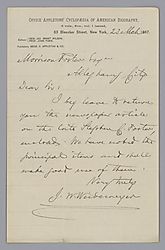 OFFICE APPLETONS' CYCLOPÆDIA OF AMERICAN BIOGRAPHY,
22 Mch 1887.
Morrison Foster Esq
Allegheny City
Dear Sir:
I beg leave to return
you the newspaper article
on the late Stephen C. Foster
We have noted the
principal items and shall
make good use of them.
Very truly